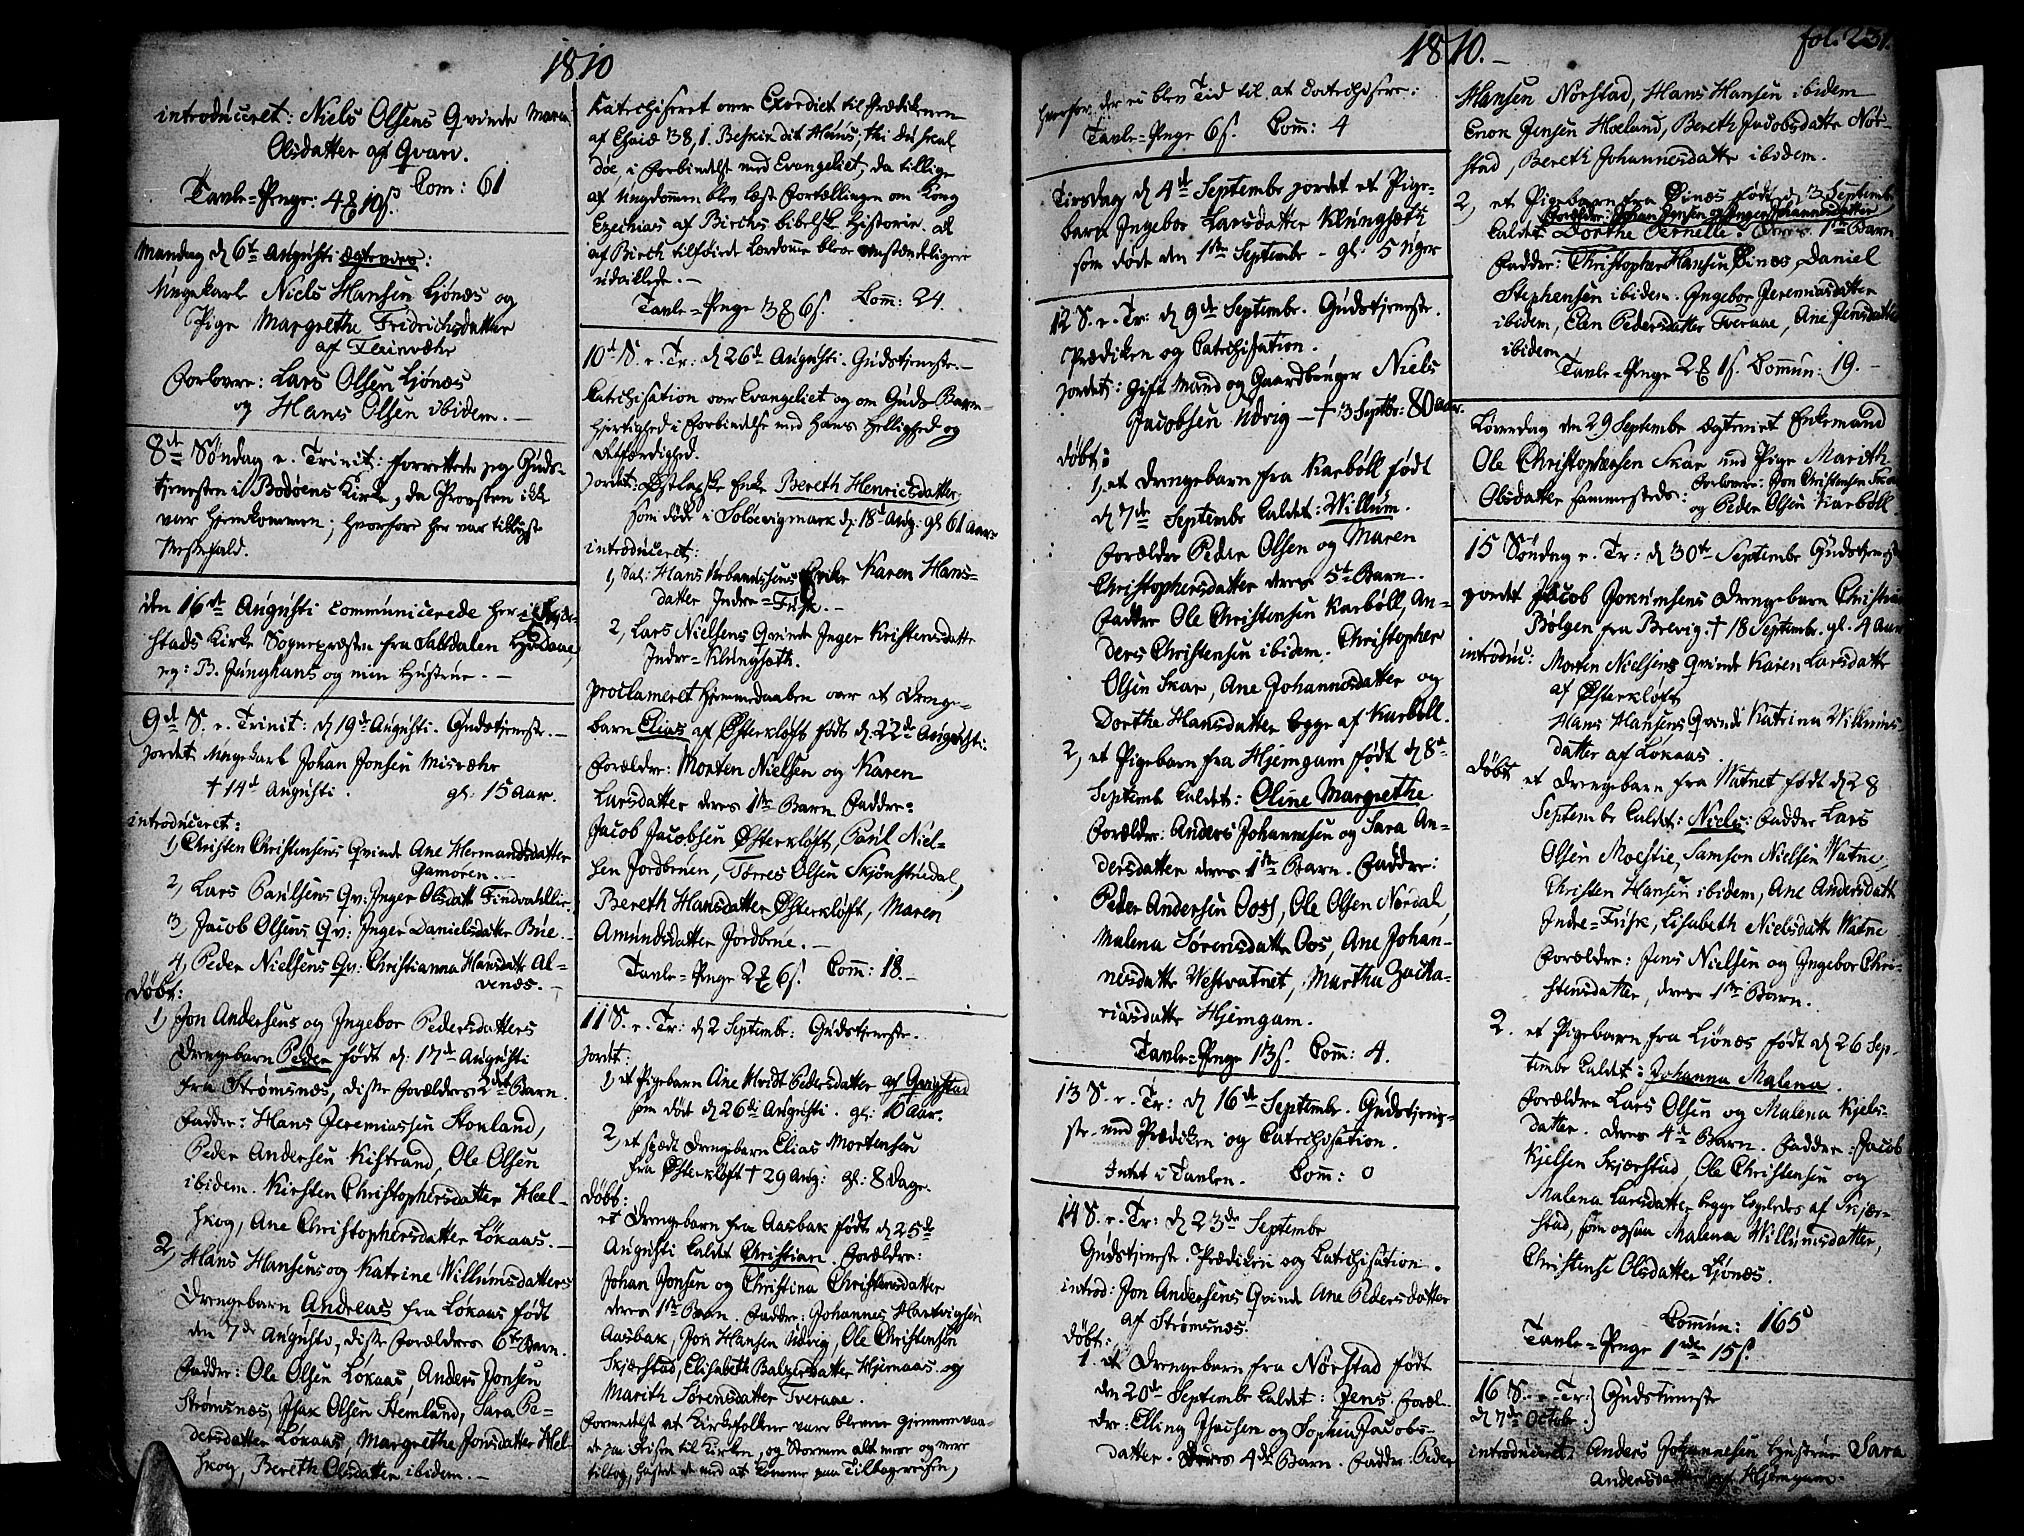 1810
introduceret: Niels Olsens Qvinde Maria
Olsdatter af Qvarv.
Tavle-Penge: 4 10 s. Com: 61
Mandag d 6te Augusti Ægtevies:
Ungekarl Niels Hansen Ljønæs og
Pige Margrethe Fridrichsdatter
af Fleinvæhr
Forlovere: Lars Olsen Ljønæs
og Hans Olsen ibidem. -
8de Søndag e. Trinit: forrettede jeg Guds-
tjenesten i Bodøens Kirke, da Provsten ikke
var hjemkommen; hvorfore her var tilligst
Messefald.
den 16de Augusti communicerede her i Skjer-
stads Kirke Sognepræsten fra Saltdalen
B. Junghans og min Hustrue. -
9de S. e. Trinit: d 19de Augusti. Gudstjeneste. -
jordet Ungekarl Johan Jonsen Misvæhr
+ 14de Augusti. gl: 15 Aar.
introduceret:
1, Christen Christensens Qvinde Ane Hermandsdatter
Gamoren. -
2, Lars Paulsens Qv: Inger Olsdatt Findvahllie.
3, Jacob Olsens Qv: Inger Danielsdatter Bue. -
4, Peder Nielsens Qv: Christianna Hansdattr Al-
venæs. -
Døbt:
1, Jon Andersens og Ingebor Pedersdatters
Drengebarn Peder født d: 17de Augusti
fra Strømsnæs, disse Forældres 2det Barn.
Faddre: Hans Jeremiassen Storland,
Peder Andersen Kistrand, Ole Olsen
ibidem. Kirsten Christophersdatter Heel-
skog, Ane Christophersdatter Løkaas. -
2, Hans Hansens og Katrine Willumsdatters
Drengebarn Andreas fra Løkaas født
den 7de Augusti, disse Forældres 6te Barn.
Faddre: Ole Olsen Løkaas, Anders Jonsen
Strømsnæs, Isak Olsen Stemland, Sara Pe-
dersdatter Løkaas, Margrethe Jonsdatter Hel-
skog, Bereth Olsdatter ibidem. -
Katechiseret over Exordiet til Prædikenen
af Esaiæ 38,1. Beskik dit Huus, thi du skal
døe, i Forbindelse med Evangeliet, da tillige
af Ungdommen blev læst Fortællingen om Kong
Ezechias af Birchs bibelske Historie. De
af Birch tilføiede Lærdomme blev omstændeligere
udviklede. -
Tavle-Penge 3 6 s. Com: 24.
10de S. e. Tr: d 26de Augusti. Gudstjeneste. -
Catechisation over Evangeliet og om Guds Barm-
hjertighed i Forbindelse med Hans Hellighed og
Retfærdighed.
jordet: Østlapske Enke Bereth Henrichsdatter,
som døde i Soløevigmark d: 18de Aug: gl 61 Aar.
introduceret:
1, Sal: Hans Urbanussens Enke Karen Hans-
datter Indre=Fusk. -
2, Lars Nielsens Qvinde Inger Kristensdatter
Indre=Klungsæth.
proclameret Hjemmedaaben over et Drenge-
barn Elias af Østerkløft født d: 22de Augusti:
Forældre: Morten Nielsen og Karen
Larsdatter deres 1ste Barn. Faddre:
Jacob Jacobsen Østerkløft, Paul Niel-
sen Jordbruen, Torres Olsen Skjønstuedal,
Bereth Hansdatter Østerkløft, Maren
Amundsdatter Jordbrue. -
Tavle-Penge 2 6 s. Com: 18. -
11 S. e. Tr: d 2 Septembr: Gudstjeneste.
jordet:
1, et Pigebarn Ane Hvidt Pedersdatter af Qvigstad
som døde d 26de Augusti. gl: 10 Aar.
2, et spædt Drengebarn Elias Mortensen
fra Østerkløft + 29 Aug: gl: 8 Dage.
Døbt:
et Drengebarn fra Aasbak født d 25de
Augusti kaldet Christian. Forældre:
Johan Jonsen og Christina Christensdatter
deres 1ste Barn. Faddre: Johannes Hartvigsen
Aasbak, Jon Hansen Udvig, Ole Christensen
Skjærstad, Elisabeth Balzersdatter Hjemaas og
Marith Sørensdatter Tveraae.
Formedelst at Kirkefolkene vare blevne gjennemvaa-
de paa Reisen til Kirken, og Stormen alt mere og mere
tiltog, hastede de med at komme paa Tilbagereisen,
1810. - fol. 231.
hvorfor der ei blev Tid til at Catechisere:
Tavle-Penge 6 s. Com: 4
Tirsdag d 4de Septembr jordet et Pige-
barn Ingebor Larsdatter Klungsæth
som døde den 1ste Septembr - gl: 5 Uger
12 S. e. Tr: d 9de Septembr. Gudstjeneste.
Prædiken og Catechisation.
jordet: Gift Mand og Gaardbruger Niels
Jacobsen Udvig - + 3 Septbr: 80 Aar.
Døbt:
1, et Drengebarn fra Karbøll født
d 7de Septembr kaldet: Willum.
Forældre Peder Olsen og Maren
Christophersdatter deres 5te Barn.
Faddre Ole Christensen Karbøll, An-
ders Christensen ibidem. Christopher
Olsen Skar, Ane Johannesdatter og
Dorthe Hansdatter begge af Karbøll.
2, et Pigebarn fra Hjemgam født d 8de
Septemb kaldet: Oline Margrethe
Forældre: Anders Johannesen og Sara An-
dersdatter deres 1ste Barn. Faddre:
Peder Andersen Oos, Ole Olsen Nordal,
Malena Sørensdatter Oos, Ane Johan-
nesdatter Westvatnet, Martha Zacha-
riasdatter Hjemgam.
Tavle-Penge 13 s. Com: 4.
13 S. e. Tr: d 16de Septembr. Gudstjene-
ste med Prædiken og Catechisation.
Intet i Tavlen. Com: 0
14 S. e. Tr: d 23de Septembr
Gudstjeneste. Prædiken og Catechisation.
introd: Jon Andersens Qvinde Ane Pedersdatter
af Strømsnæs.
Døbt:
1. et Drengebarn fra Norstad født
den 20de Septembr kaldet: Jens Foræl-
dre: Elling Isacsen og Sophia Jacobs-
datter. Deres 4de Barn. Faddre: Peder
Hansen Norstad, Hans Hansen ibidem
Enok Jensen Hoeland, Bereth Jacobsdatter Nor-
stad, Bereth Johannesdatter ibidem.
2, et Pigebarn fra Øinæs født d 3 Septembr
Forældre: Johan Jensen og Inger Johannesdatter
kaldet Dorthe Pernelle. Deres 1ste Barn
Faddre: Christopher Hansen Øinæs, Daniel
Stephensen ibidem. Ingebor Jeremiasdatter
ibidem, Elen Pedersdatter Tveraae, Ane Jensdatter
ibidem
Tavle-Penge 2 1 s. Commun: 19. -
Løverdag den 29 Septembr Ægteviet Enkemand
Ole Christophersen Skar med Pige Marith
Olsdatter sammesteds: Forlovere: Jon Christensen Skar
og Peder Olsen Karbøll
15 Søndag e. Tr: d 30te Septembr Gudstjeneste
jordet Jacob Jokumsens Drengebarn Christian
Bølgen fra Brevig. + 18 Septembr. gl. 4 Aar
introduc: Morten Nielsens Qvinde Karen Larsdatter
af Østerkløft
Hans Hansens Qvinde Katrina Willums-
datter af Løkaas.
Døbt et Drengebarn fra Watnet født d 28
Septembr kaldet: Niels. Faddre Lars
Olsen Moestie, Samson Nielsen Watne,
Christen Hansen ibidem, Ane Andersdatt
Indre=Fusk, Lisabeth Nielsdatt Watne
Forældre: Jens Nielsen og Ingebor Chri-
stensdatter, deres 1ste Barn.
2. et Pigebarn fra Ljønæs født d 26 Sep-
tembr kaldet: Johanna Malena.
Forældre Lars Olsen og Malena Kjels-
datter. Deres 4de Barn. Faddre: Jacob
Kjelsen Skjærstad, Ole Christensen og
Malena Larsdatter, begge ligeledes af Skjær-
stad, som ogsaa Malena Willumsdatter,
Christense Olsdatter Ljønæs.
Commun: 165
Tavle-Penge 1 rdr 15 s.
16 S. e. Tr: Gudstjeneste
d 7de October
introduceret: Anders Johannesens Hustrue Sara
Andersdatter af Hjemgam.